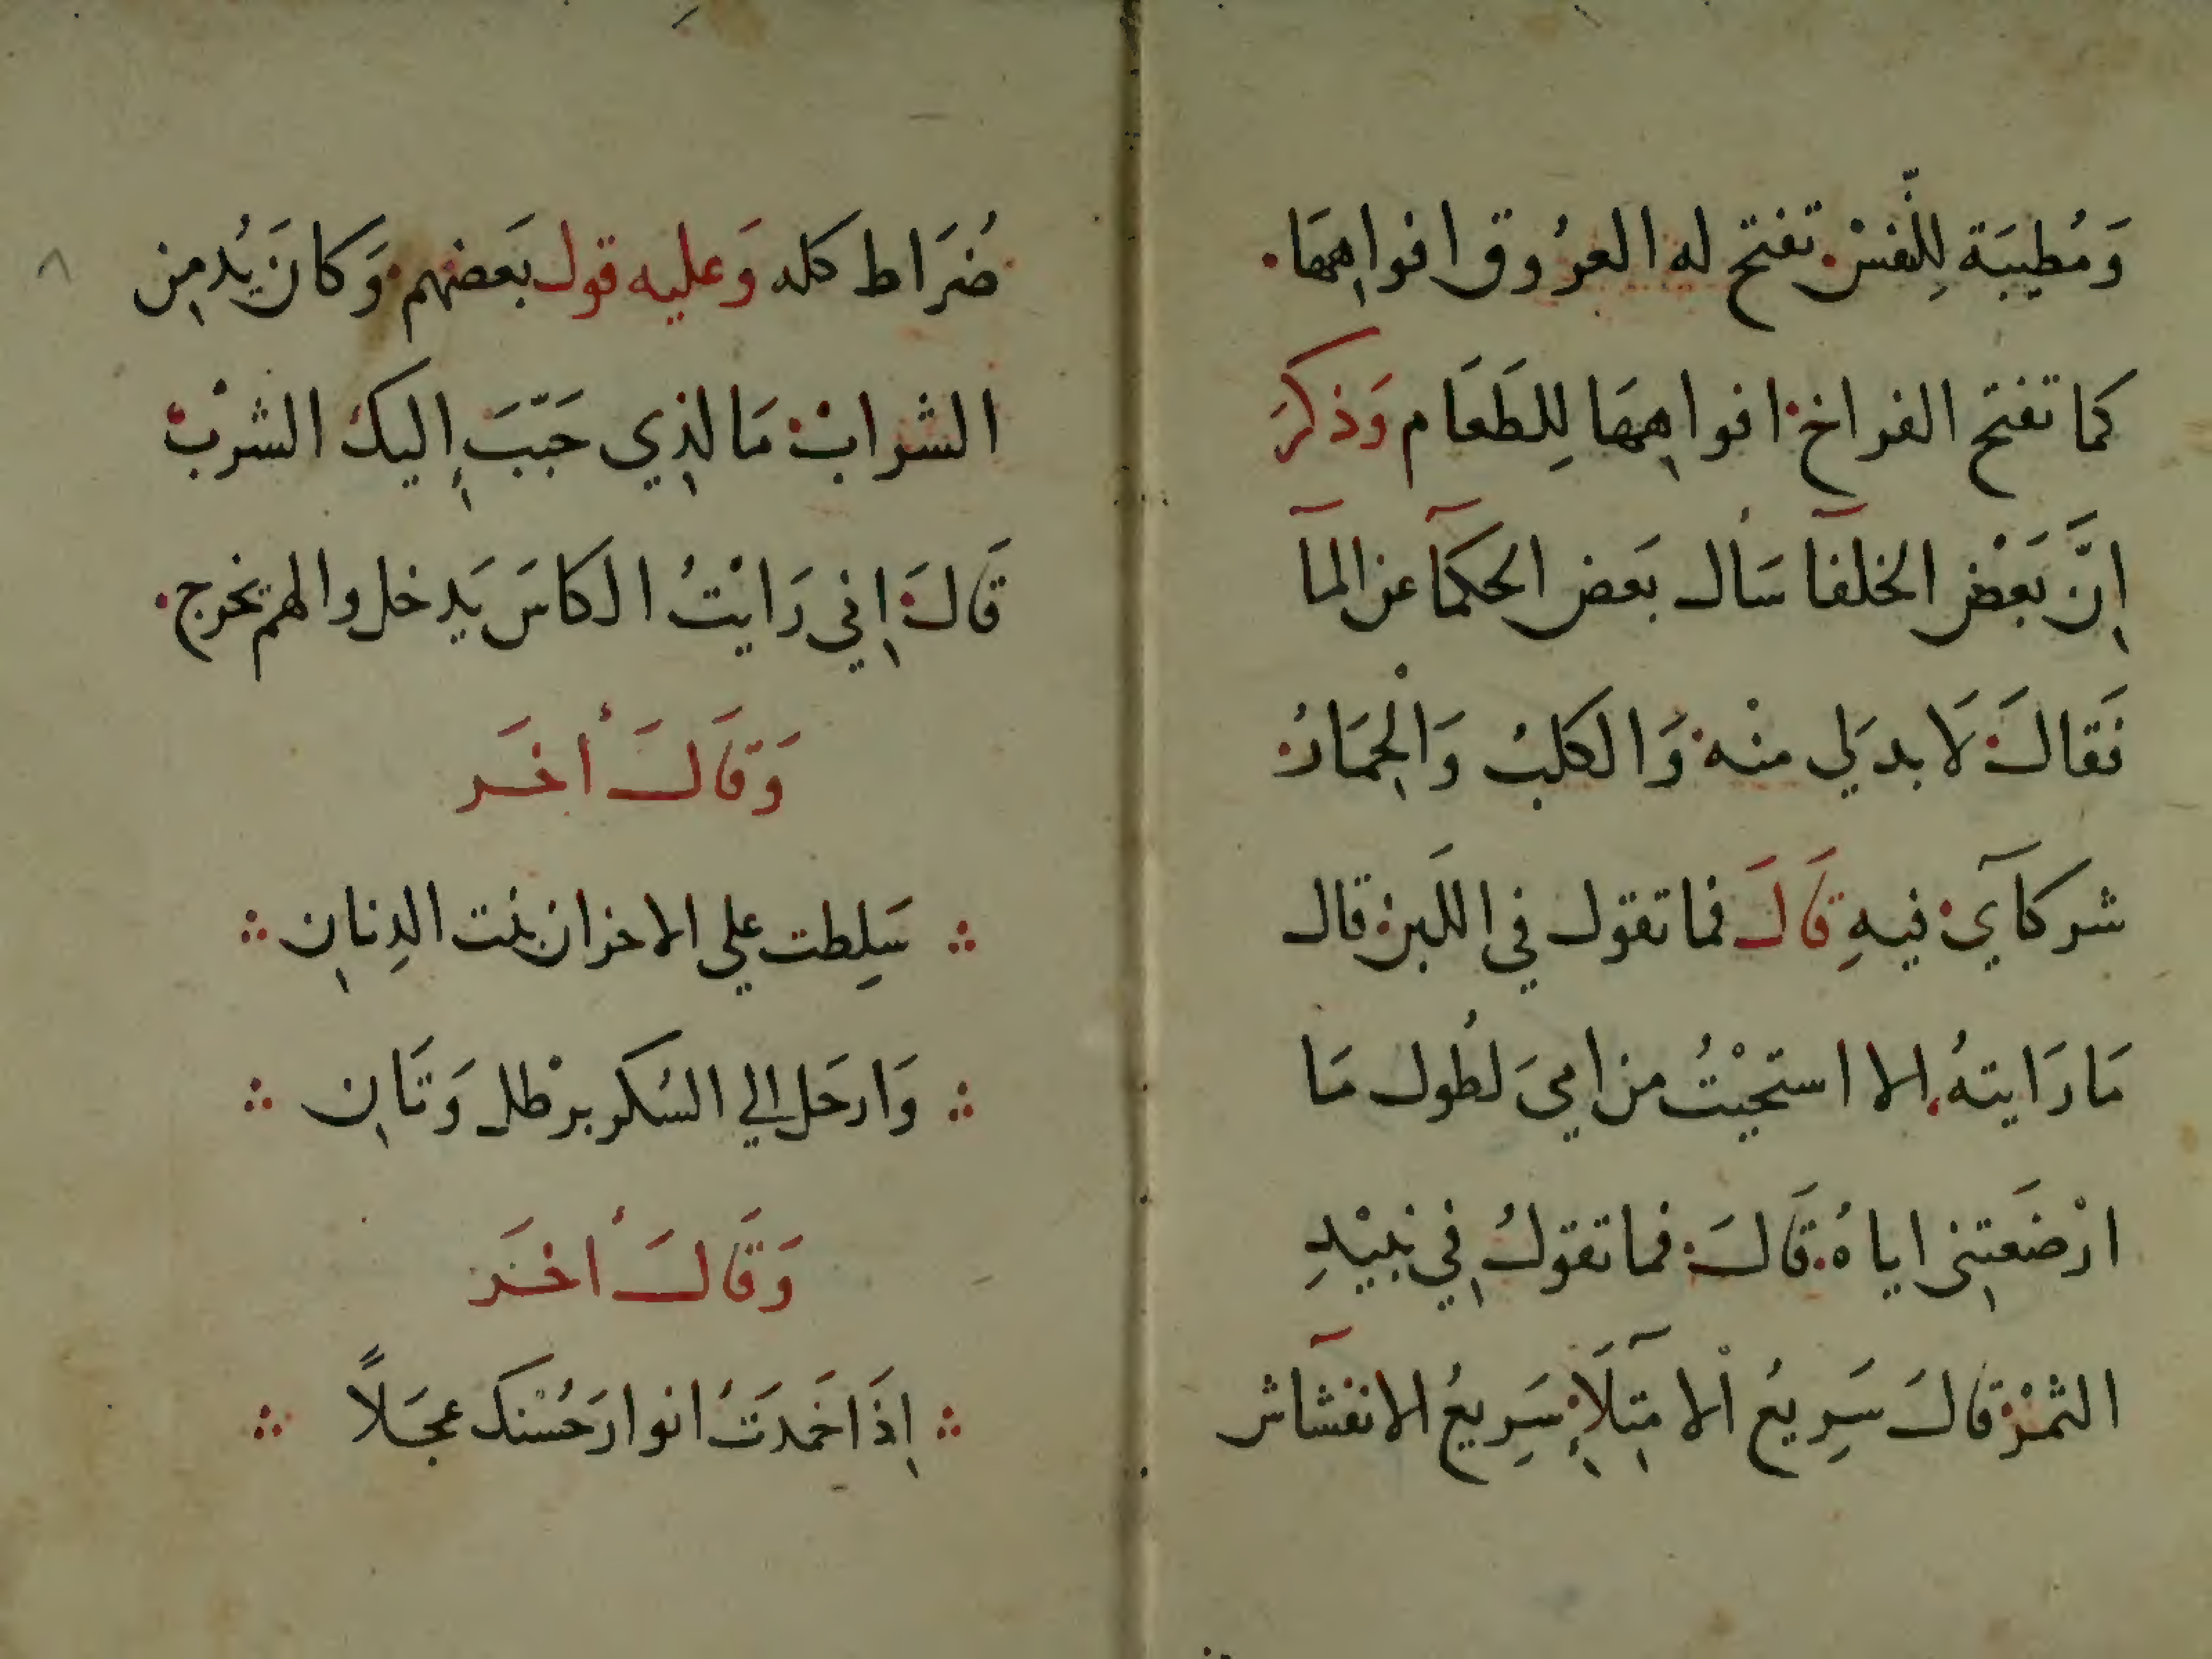 وَمُطيِبَة لِلنّفسْ تفتح له العرُوق افواهِهَا.
كما تفتح الفراخ افواهِهَا لِلطَعَام وَذكرَ
اِنَّ بَعْضُ الخلفآ سَأل بَعض الحكمآ عن المآ
فَقالَ لَا بد لي منْه وَالكلبُ وَالْحِمَارُ
شركآي فيهِ قَالَ فما تقول في اللبن قال
مَا رَايتهُ الا استحيْتُ من امي لطُول مَا
ارْضَعَتِني اياهُ قَالَ فما تقولُ فِي نبيْدِ
التمْر قالَ سَرِيعُ ألامتِلَآءِ سَرِيعُ الانفشاش
ضُرَاط كله وَعليه قول بَعضهم وَكانَ يُدمِن
الشراب مَا الذِي حَبّبَ إِليك الشرْب
قَالَ اِني رَايْتُ الكاسَ يَدخل والهم يخرج.
٨
وَقَالَ أخَر
سَلِطت علي الاحزان بنت الدِنانِ
وَارحَل الي السُكر برْطل وَتَانِ
وَقَالَ أخَر
اِذَا خَمدَتُ انوار حُسْنك عجَلاً